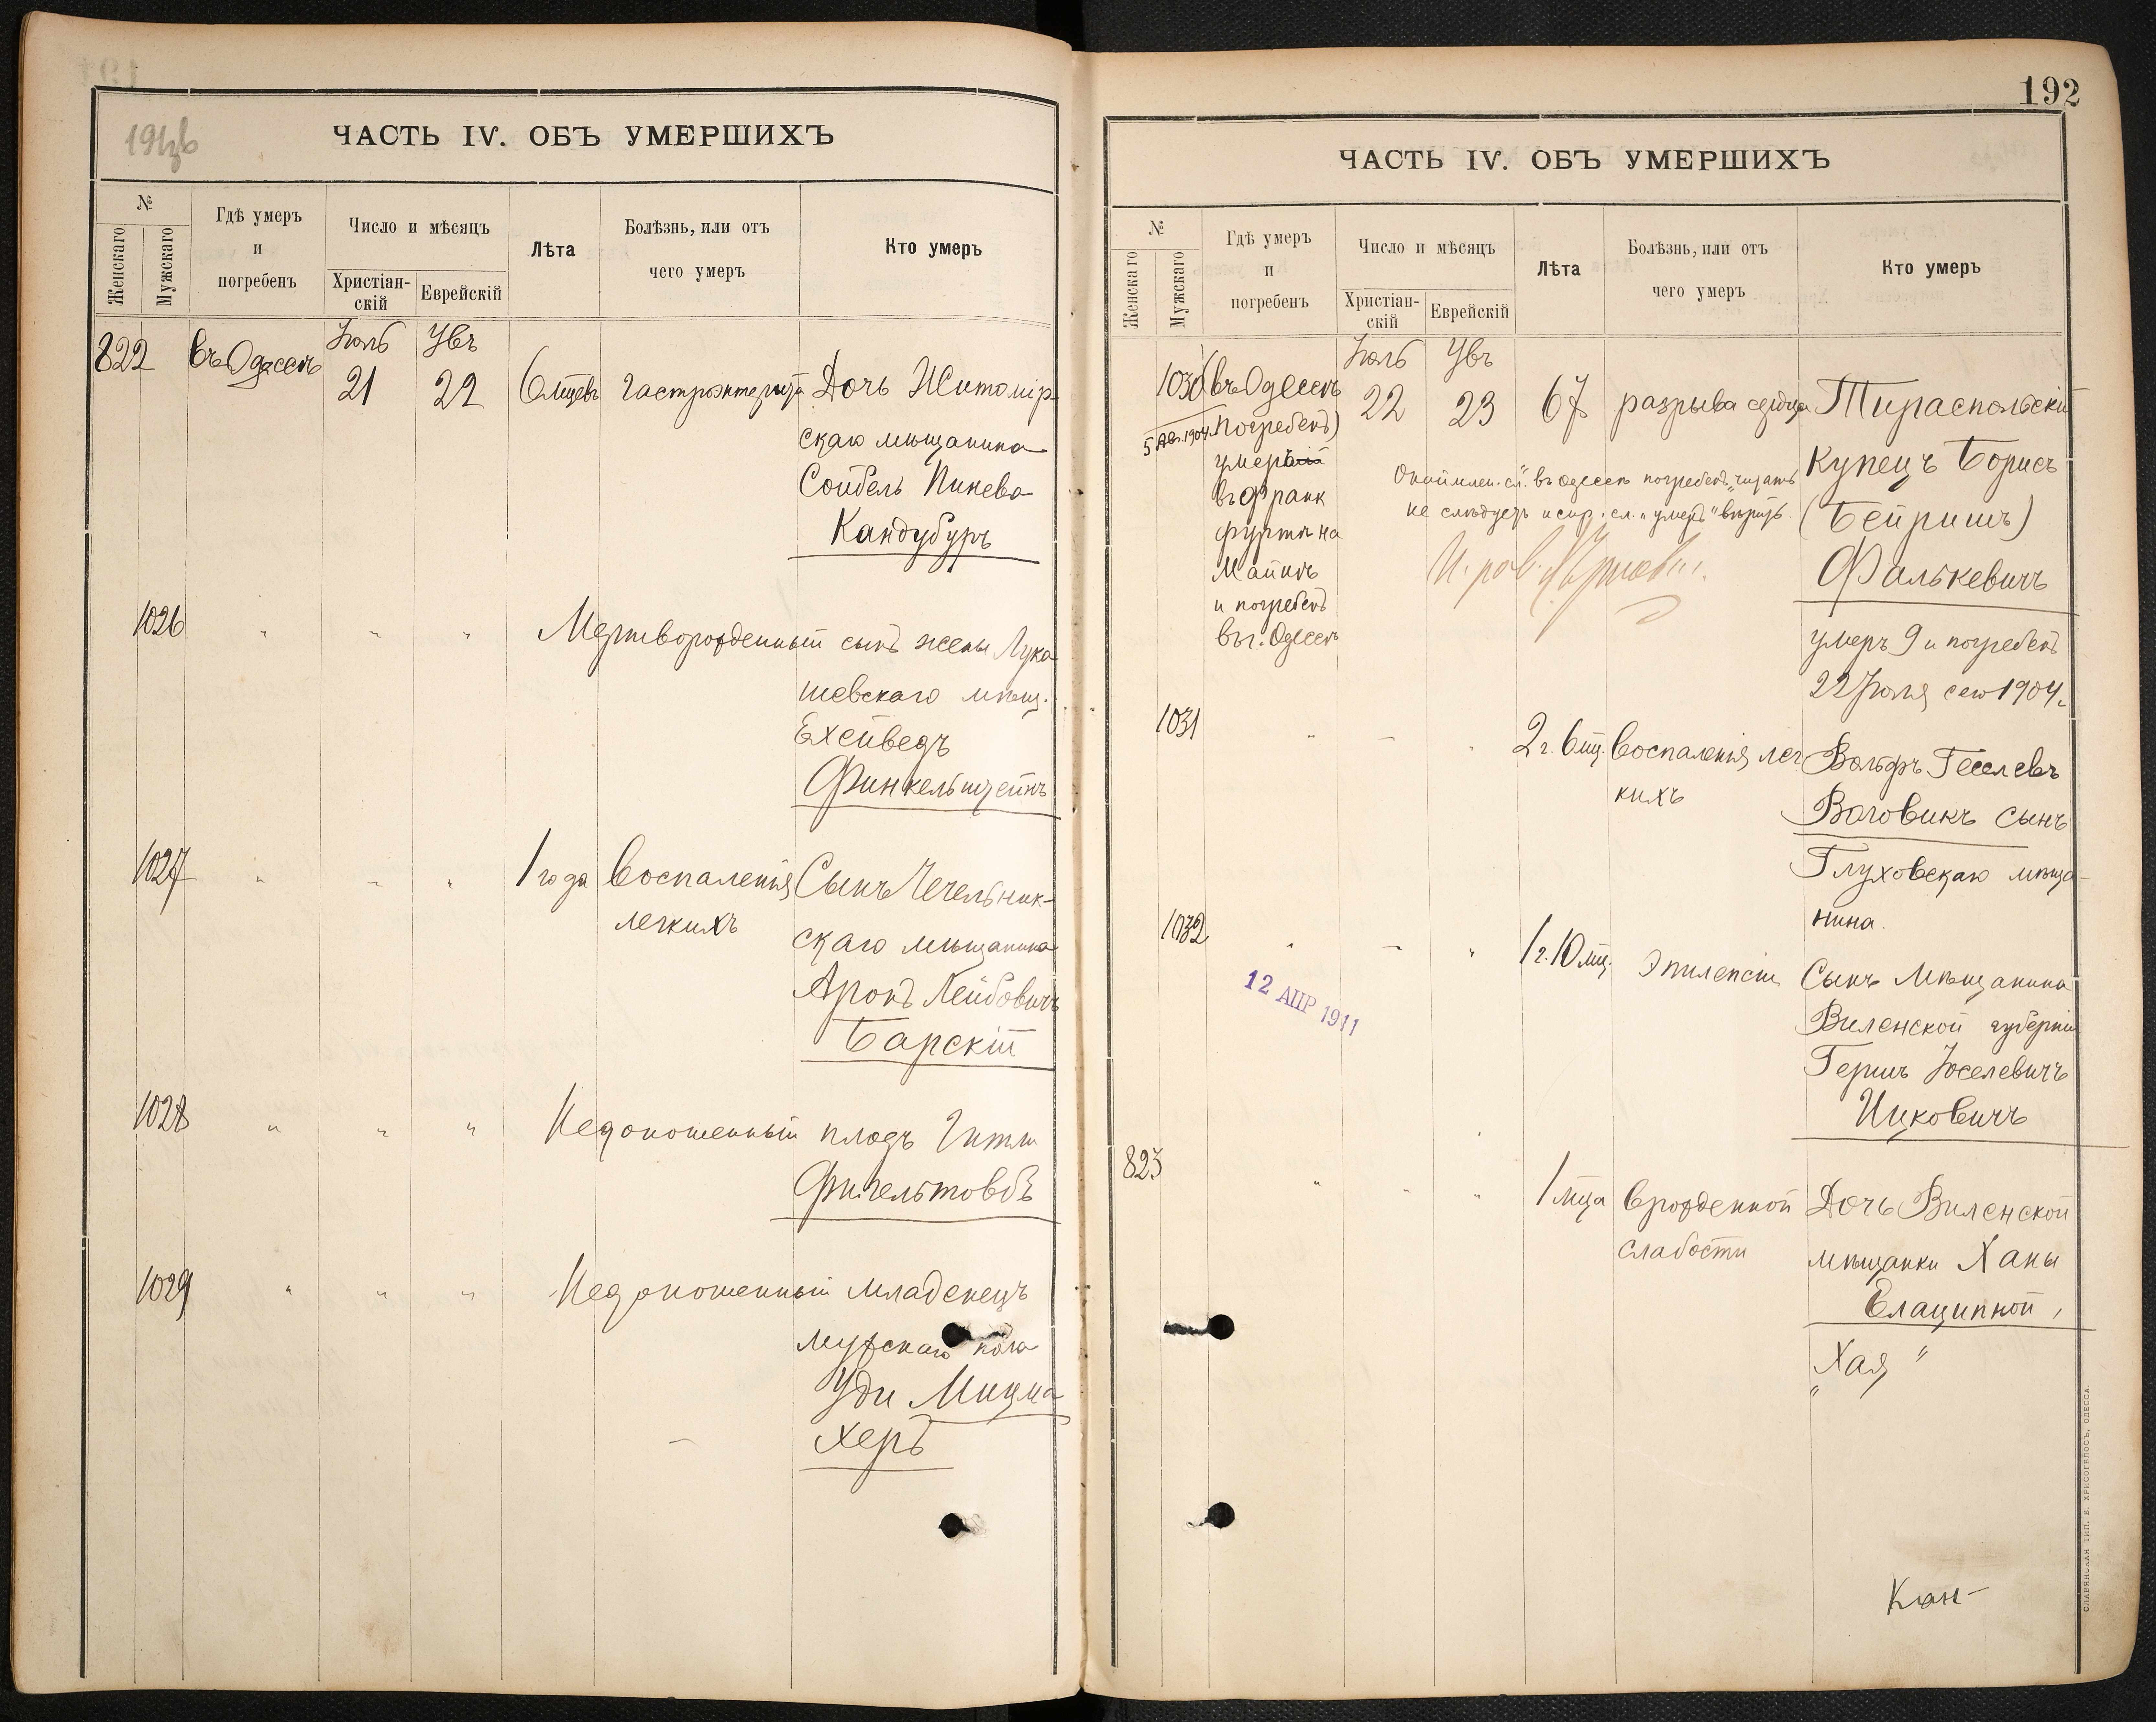 ЧАСТЬ IV. ОБЪ УМЕРШИХЪ
№
Женскаго
Мужскаго
Гдѣ умеръ
и
погребенъ
Число и мѣсяцъ
Христіан-
скій
Еврейскій
Лѣта
Болѣзнь, или отъ
чего умеръ
Кто умеръ
822
въ Одессѣ
Іюль
21
Увъ
22
6 мцевъ
гастроэнтерита
Дочь Житомір-
скаго мѣщанина
Сойбель Пинева
Кандубуръ
1026
"
"
"
Мертворожденный сынъ жены Лука
шевскаго мѣщ.
Ехейведъ
Финкельштейнъ
1027
"
"
"
1 года
Воспаленія
легкихъ
Сынъ Чечельник-
скаго мѣщанина
Аронъ Лейбовичъ
Барскій
1028
"
"
"
Недоношенный плодъ Гитли
1029
"
"
"
Недоношенный младенецъ
мужскаго пола
Уди Мицма
херъ
192
ЧАСТЬ IV. ОБЪ УМЕРШИХЪ
№
Женскаго
Мужскаго
Гдѣ умеръ
и
погребенъ
Число и мѣсяцъ
Христіан-
скій
Еврейскій
Лѣта
Болѣзнь, или отъ
чего умеръ
Кто умеръ
1030
5 Ав. 1904.
(въ Одессѣ
погребенъ)
умеръ
въ Франк
фуртѣ на
Майнѣ
и погребенъ
въ г. Одессѣ
Іюль
22
Увъ
23
67
разрыва сердца
сл. "въ Одессѣ погребенъ" читать
не слѣдуетъ испр. сл. "умеръ" вѣрить.
Тираспольскій
Купецъ Борисъ
(Бейришъ)
Фалькевичъ
умеръ 9 и погребенъ
22 Іюля сего 1904 г.
1031
"
"
"
2 г. 6 мц.
Воспаленія лег
кихъ
Вольфъ Геселевъ
Ваговикъ сынъ
Глуховскаго мѣща-
нина.
1032
"
"
"
12 АПР 1911
1 г. 10 мц.
Эпилепсіи
Сынъ Мѣщанина
Виленской губерніи
Гершъ Іоселевичъ
Ицковичъ
823
"
"
"
1 мца
Врожденной
слабости
Дочь Виленской
мѣщанки Ханы
Елацинной,
"Хая"
Кан-
СЛАВЯНСКАЯ ТИП. Е. ХРИСОГЕЛОСЪ, ОДЕССА.